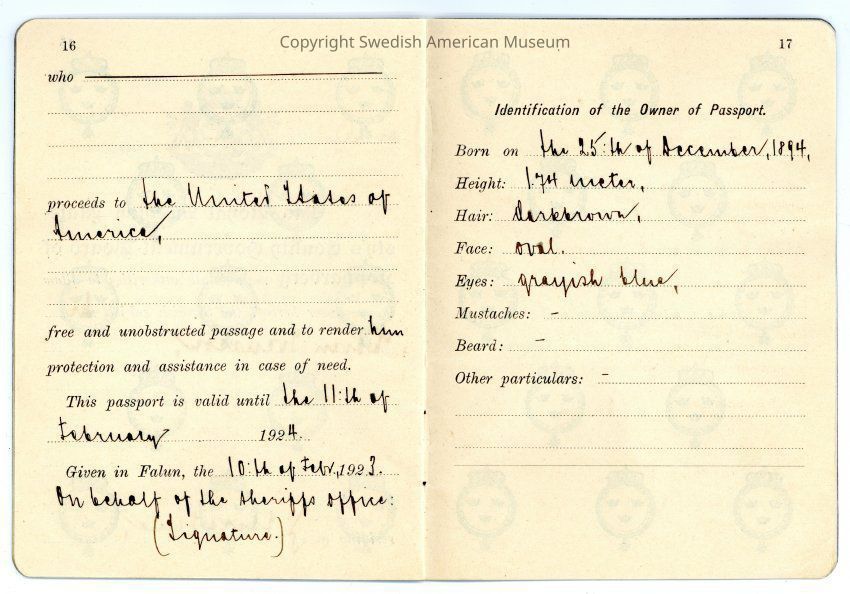 Copyright Swedish American Museum
16
who
proceeds to the United States of
America,
free and unobstructed passage and to render him
protection and assistance in case of need.
This passport is valid until the 11:th of
February 1924.
Given in Falun, the 10:th of Febr. 1923.
On behalf of the sheriffs office:
(Signature.)
17
Identification of the Owner of Passport.
Born on the 25:th of December, 1894,
Height: 1.74 meter,
Hair: darkbrown,
Face: oval.
Eyes: grayish blue,
Mustaches: -
Beard: -
Other particulars: -